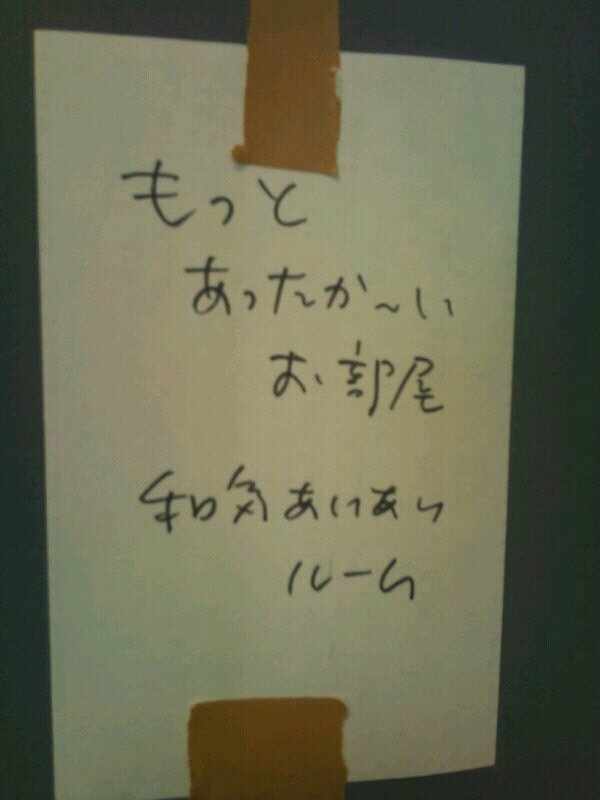 もっと
あったか～い
お部屋
和気あいあい
ルーム